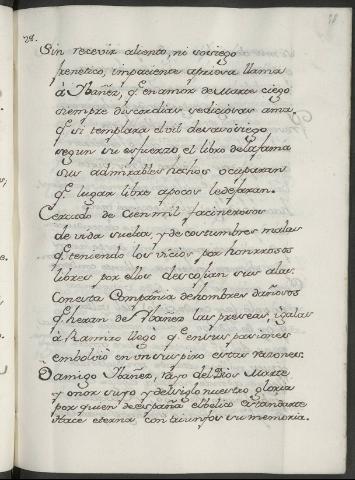 28.
Sin recevir aliento, ni sosiego
frenetico, impaciente apriova llama
à Ybañez, q.e en amor de Marte ciego
siempre discordias, sediciosas ama,
q.e si templara el vil desasosiego
segun su esfuerzo el libro de la fama
sus admirables hechos ocuparan
q.e lugar libre a pocos le dejaran.
Cercado de Cien mil facinerosos
de vida suelta, y de costumbres malas
q.e teniendo los vicios por honrrosos
libres por ellos descojian sus alas.
Con esta Compañia de hombres dañosos
q.e heran de Ybañez las preseas, i galas
à Ramiro llegò q.e entre sus pasiones
embolviò en un suspiro estas razones.
O amigo Ybañez, rayo del Dios Marte
y onor suyo, y del siglo nuestro gloria
por quien de españa el belico estandarte
Hace eterna, con triunfos su memoria.